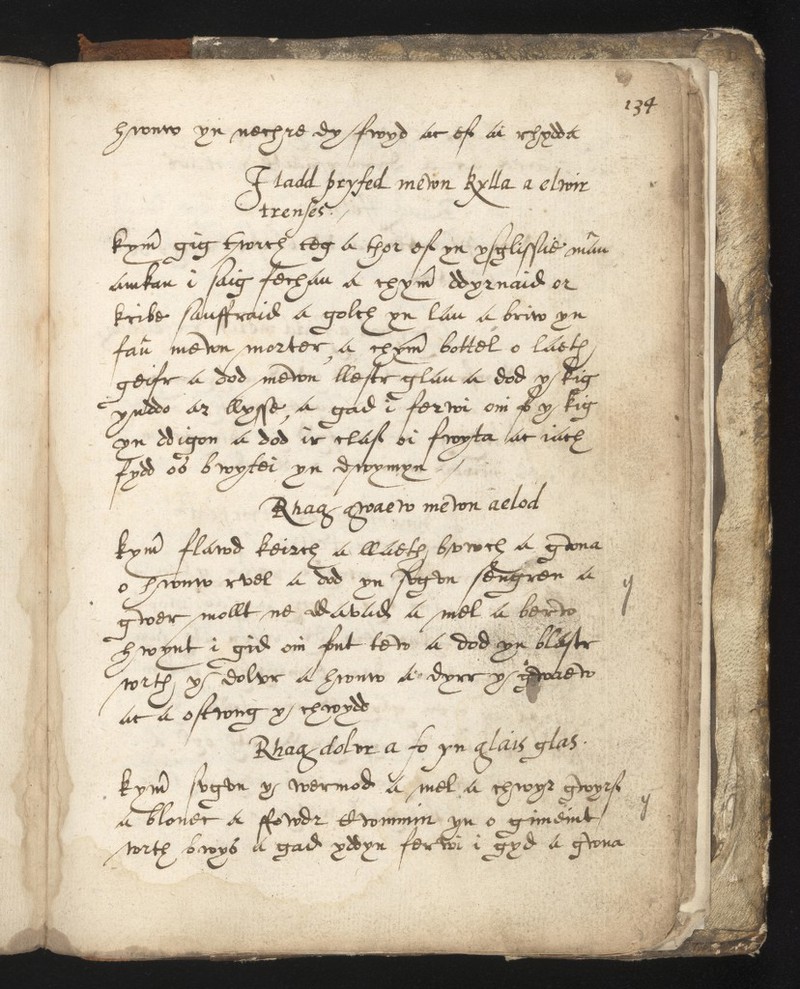 134
hwnw yn nechre dy fwyd ac ef ai rhydda
I ladd pryfed mewn kylla a elwir
trenses.
kym̄ gig hwrch teg a thor ef yn ysglissie mân
amkan i saig fechan a chym̄ ddyrnaid or
kribe sanffraid a golch yn lan a briw yn
fân mewn morter, a chym̄ bottel o laeth
geifr a dod mewn llestr glan a dod y kig
ynddo ar llysse, a gad i ferwi oni fo y kig
yn ddigon a dod ir claf oi fwyta ac iach
fydd os bwytei yn dwymyn
Rhag gwaew mewn aelod
kym̄ flawd keirch a llaeth bvwch a gwna
o hwnw rvel a dod yn svgvn sengren a
gwer mollt ne ddavad a mel a berw
hwynt i gid oni fnt tew a dod yn blastr
wrth y dolvr a hwnw a dyrr y gwaew
ac a ostwng y chwydd
Rhag dolvr a fo yn glais glas.
kym̄ svgvn y wermod a mel a chwyr gwyrf
a blonec a ffowdr cwmmin yn o gimeint
wrth bwys a gad yddyn ferwi i gyd a gwna